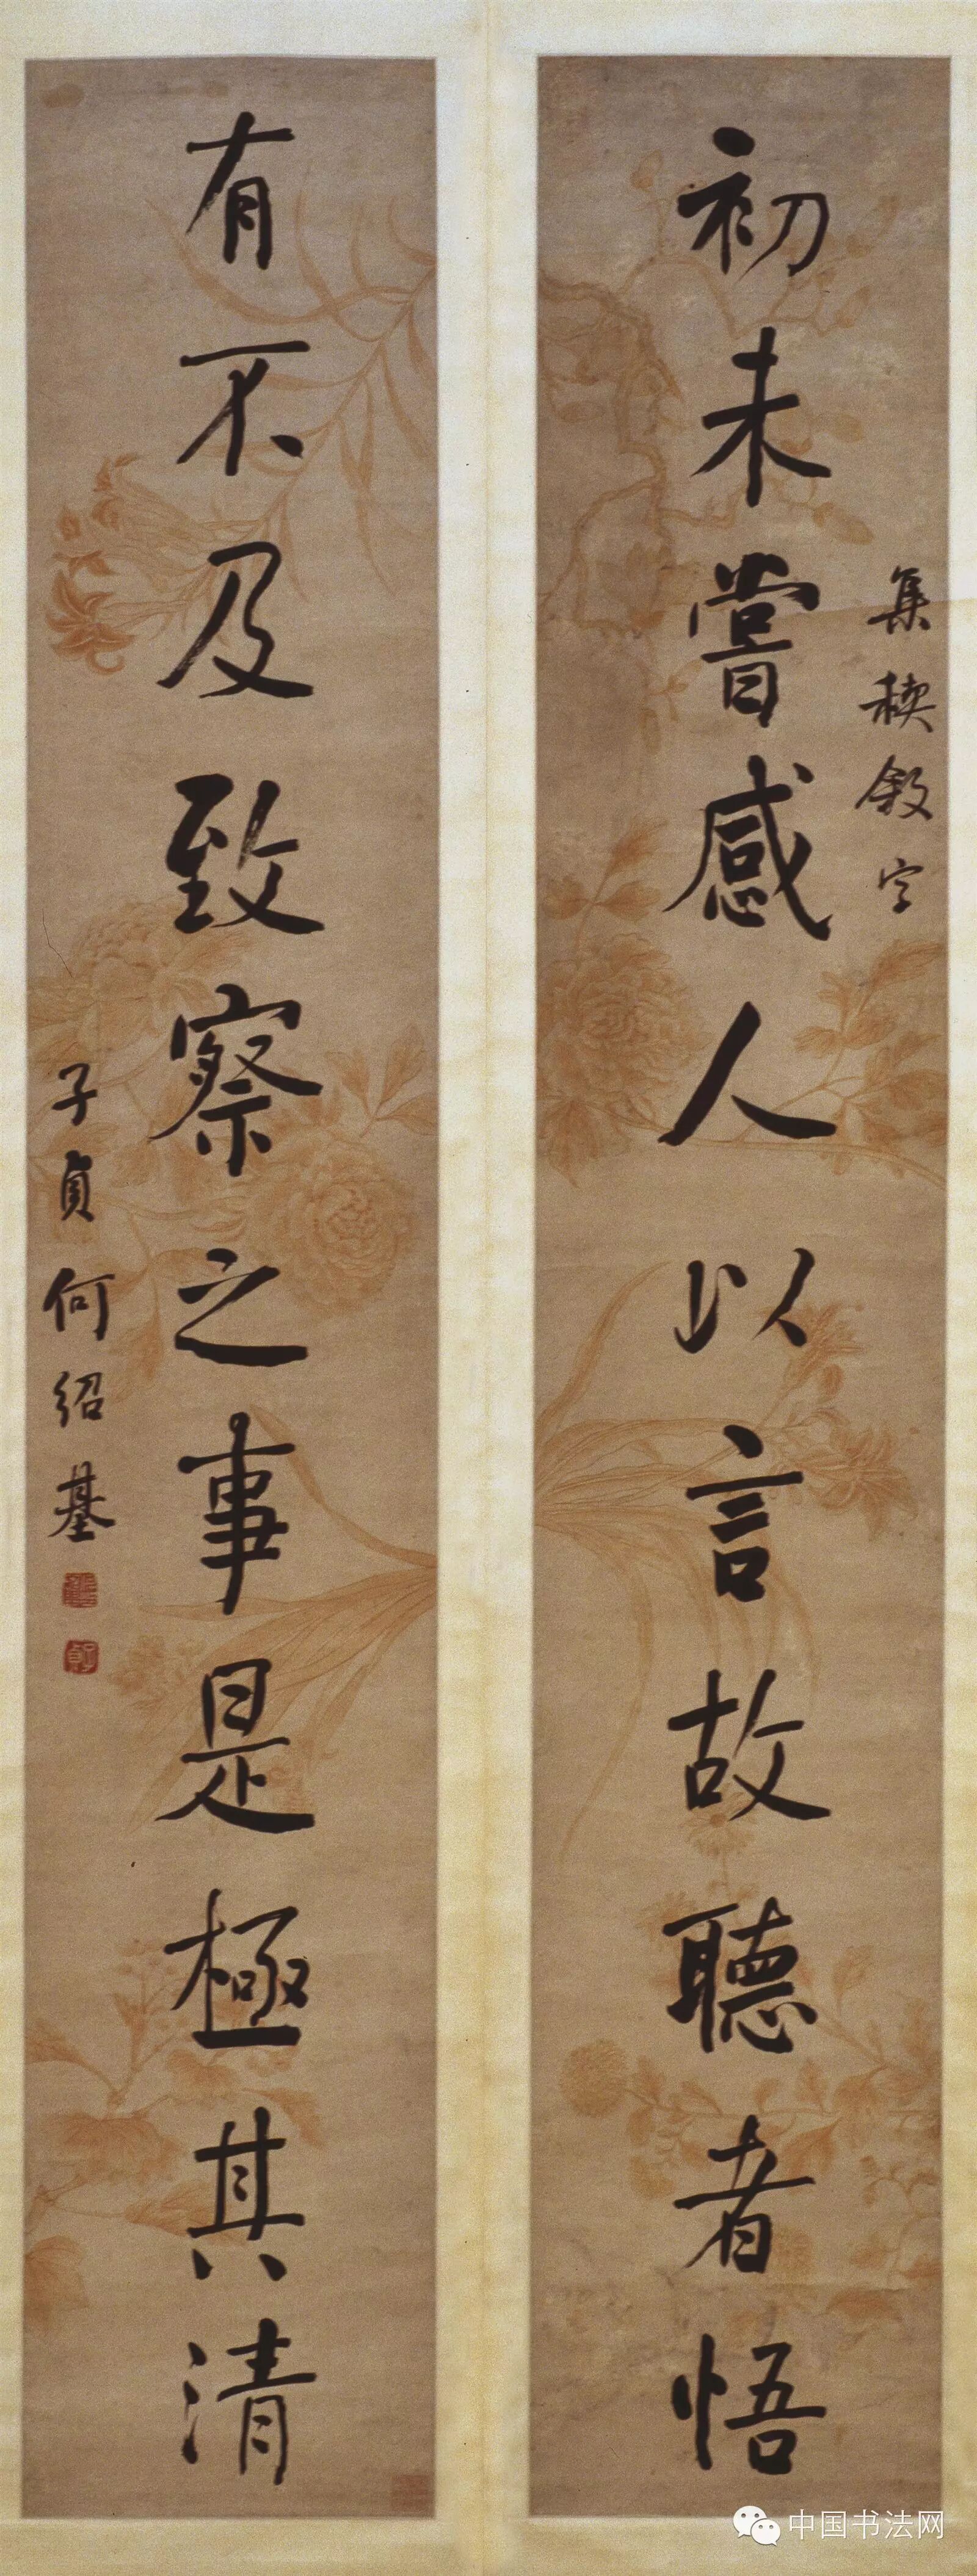 集禊敘字
初未嘗感人以言故聽者悟
有不及致察之事是極其清
子貞何紹基
子貞
中国书法网